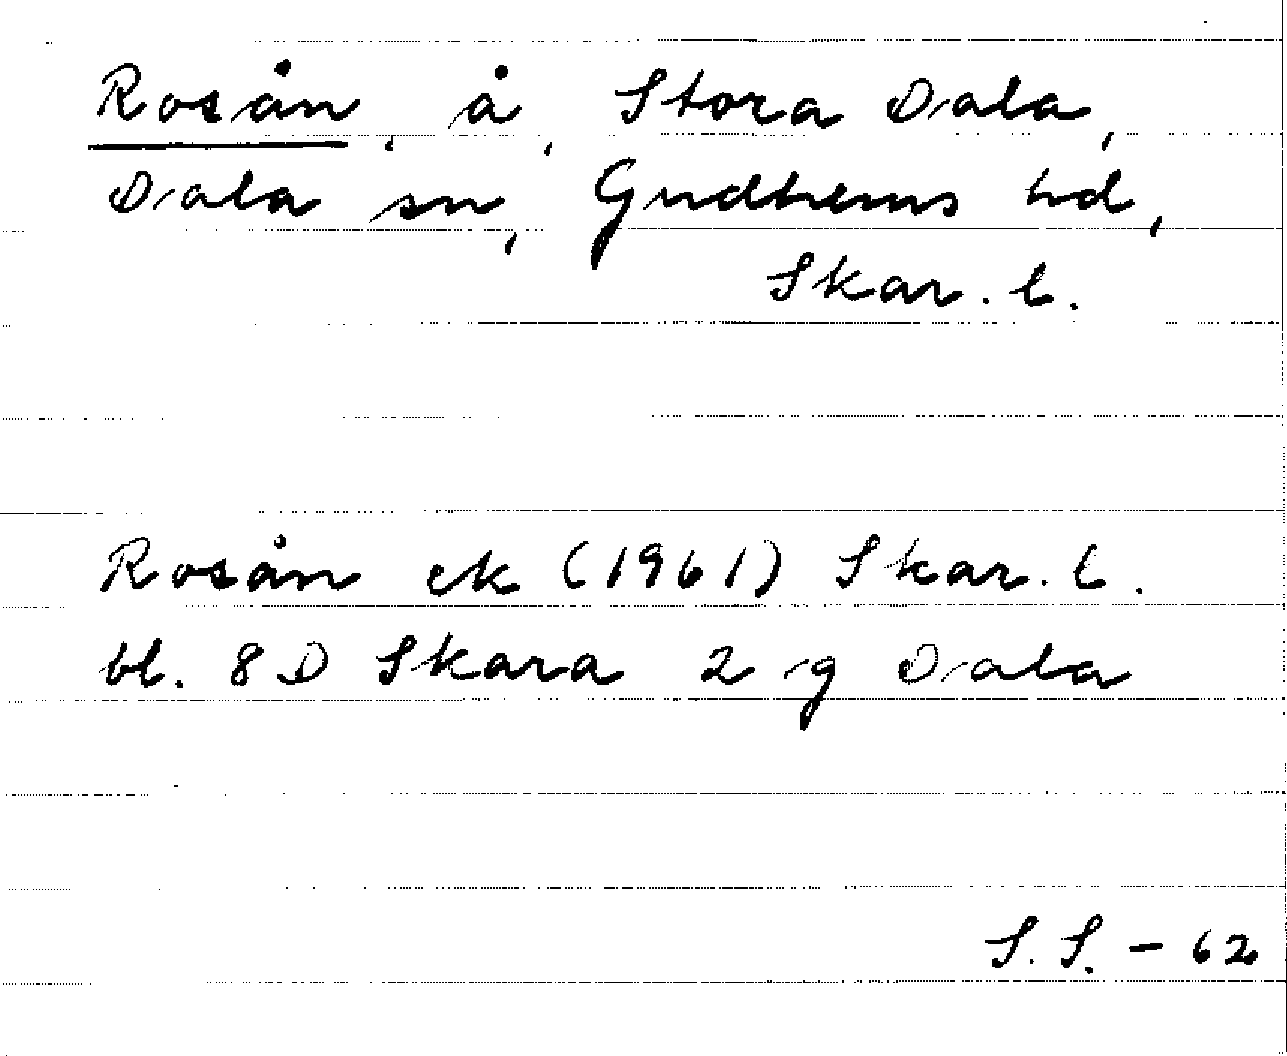 Rosån, å, Stora Dala,
Dala sn, Gudhems hd,
Skar. l.
Rosån ek (1961) Skar. l.
bl. 8 D Skara 2 g Dala
S. S. - 62